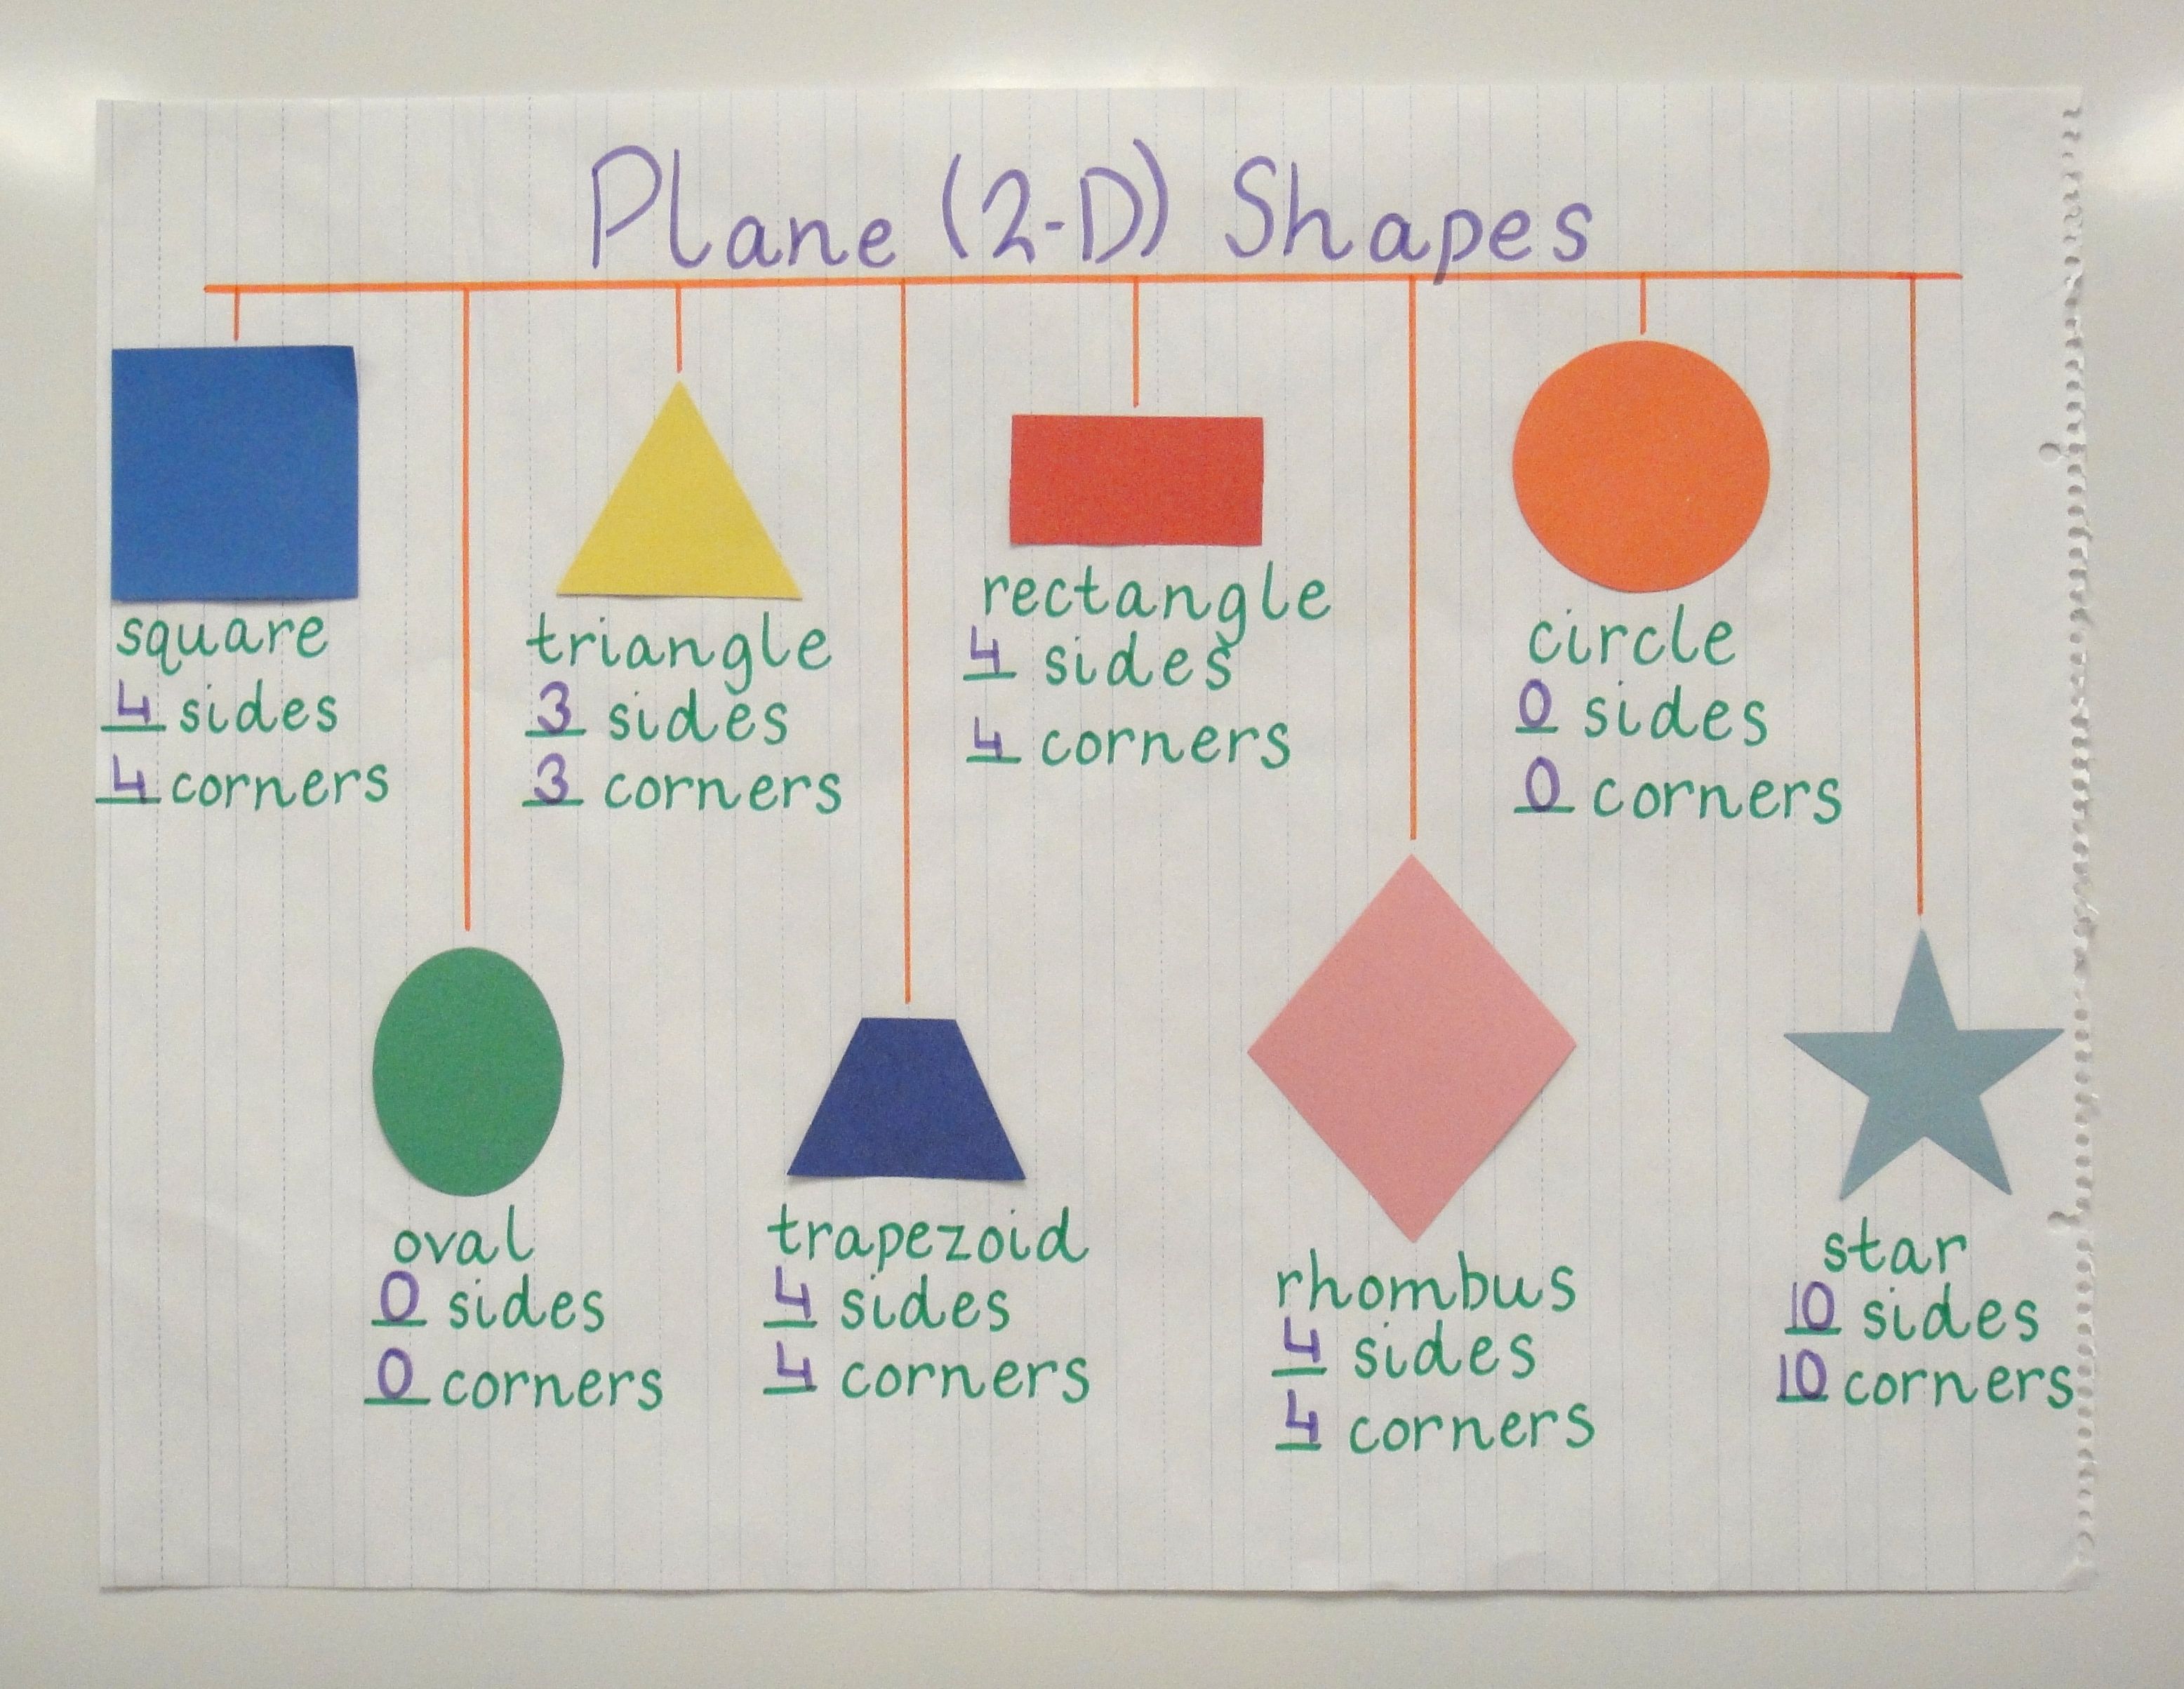 Plane (2-D) Shapes
square
4 sides
4 corners
triangle
3 sides
3 corners
rectangle
4 sides
4 corners
circle
0 sides
0 corners
oval
0 sides
0 corners
trapezoid
4 sides
4 corners
rhombus
4 sides
4 corners
star
10 sides
10 corners